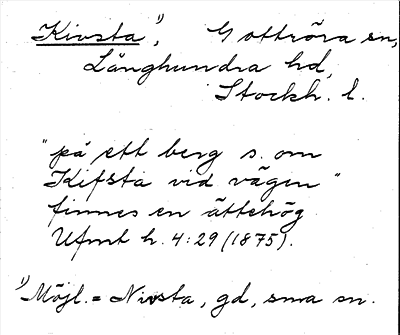 Kivsta ¹), Gottröra sn,
Långhundra hd,
Stockh. l.
"på ett berg s. om
Kifsta vid vägen"
finnes en ättehög
Ufmt h. 4:29 (1875).
¹) Möjl. = Nivsta, gd, sma sn.